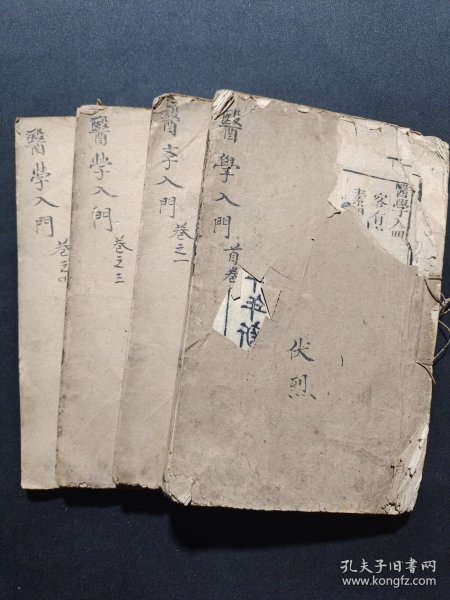 醫學入門
首卷
伏烈
年新
醫學入門
客有
醫李入門
卷之一
醫学入門
卷之三
醫学入門
卷之四
孔夫子旧书网
www.kongfz.com